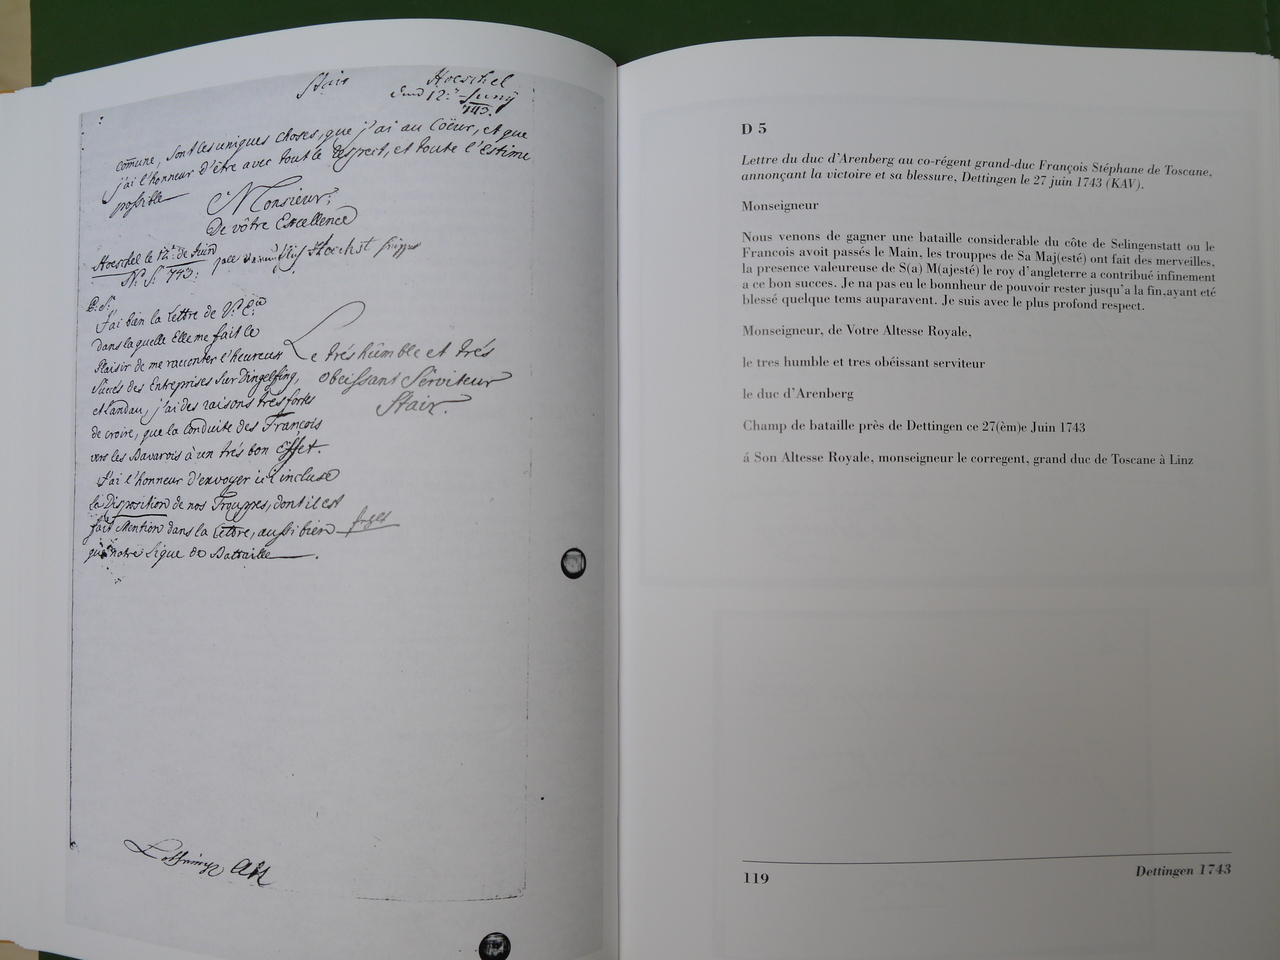 Stair
Hoeschel
12. Juny
743.
comune, sont les uniques choses, que j'ai au Coeur, et que
j'ai l'honneur d'être avec tout le Respect, et toute l'Estime
possible
Monsieur,
De vôtre Excellence
Hoeschel le 12. de Juin
N. S. 743.
P. S.
J'ai bien la Lettre de V. E.
dans laquelle Elle me fait le
Plaisir de me raconter l'heureux
Succés des Entreprises sur Dingelfing,
et Landau, j'ai des raisons tres fortes
de croire, que la Conduite des François
vers les Bavarois a un trés bon Effet.
J'ai l'honneur d'envoyer ici incluse
la Disposition de nos Trouppes, dont il est
fait Mention dans la Lettre, aussi bien
que notre Ligue de Battaille
Le trés humble et trés
obeissant Serviteur
Stair.
D 5
Lettre du duc d'Arenberg au co-régent grand-duc François Stéphane de Toscane,
annonçant la victoire et sa blessure, Dettingen le 27 juin 1743 (KAV).
Monseigneur
Nous venons de gagner une bataille considerable du côte de Selingenstatt ou le
Francois avoit passés le Main, les trouppes de Sa Maj(esté) ont fait des merveilles,
la presence valeureuse de S(a) M(ajesté) le roy d'angleterre a contribué infinement
a ce bon succes. Je na pas eu le bonnheur de pouvoir rester jusqu'a la fin,ayant eté
blessé quelque tems auparavent. Je suis avec le plus profond respect.
Monseigneur, de Votre Altesse Royale,
le tres humble et tres obéissant serviteur
le duc d'Arenberg
Champ de bataille près de Dettingen ce 27(èm)e Juin 1743
á Son Altesse Royale, monseigneur le corregent, grand duc de Toscane à Linz
119
Dettingen 1743